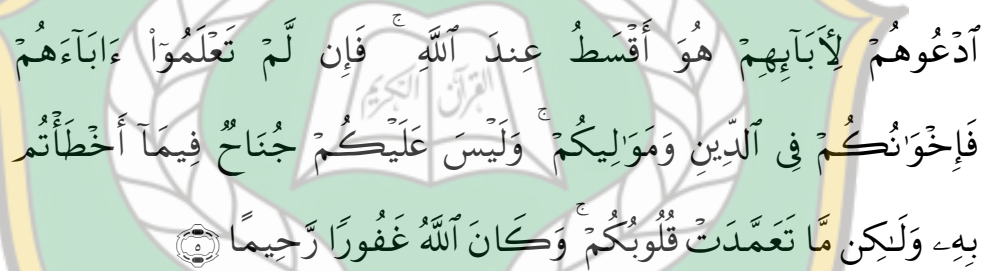 ٱدْعُوهُمْ لِأٓبَآئِهِمْ هُوَ أَقْسَطُ عِندَ ٱللَّهِ ۚ فَإِن لَّمْ تَعْلَمُوٓا۟ ءَابَآءَهُمْ
فَإِخْوَٰنُكُمْ فِى ٱلدِّينِ وَمَوَٰلِيكُمْ ۚ وَلَيْسَ عَلَيْكُمْ جُنَاحٌ فِيمَآ أَخْطَأْتُم
بِهِۦ وَلَٰكِن مَّا تَعَمَّدَتْ قُلُوبُكُمْ ۚ وَكَانَ ٱللَّهُ غَفُورًا رَّحِيمًا ٥
القرآن الكريم